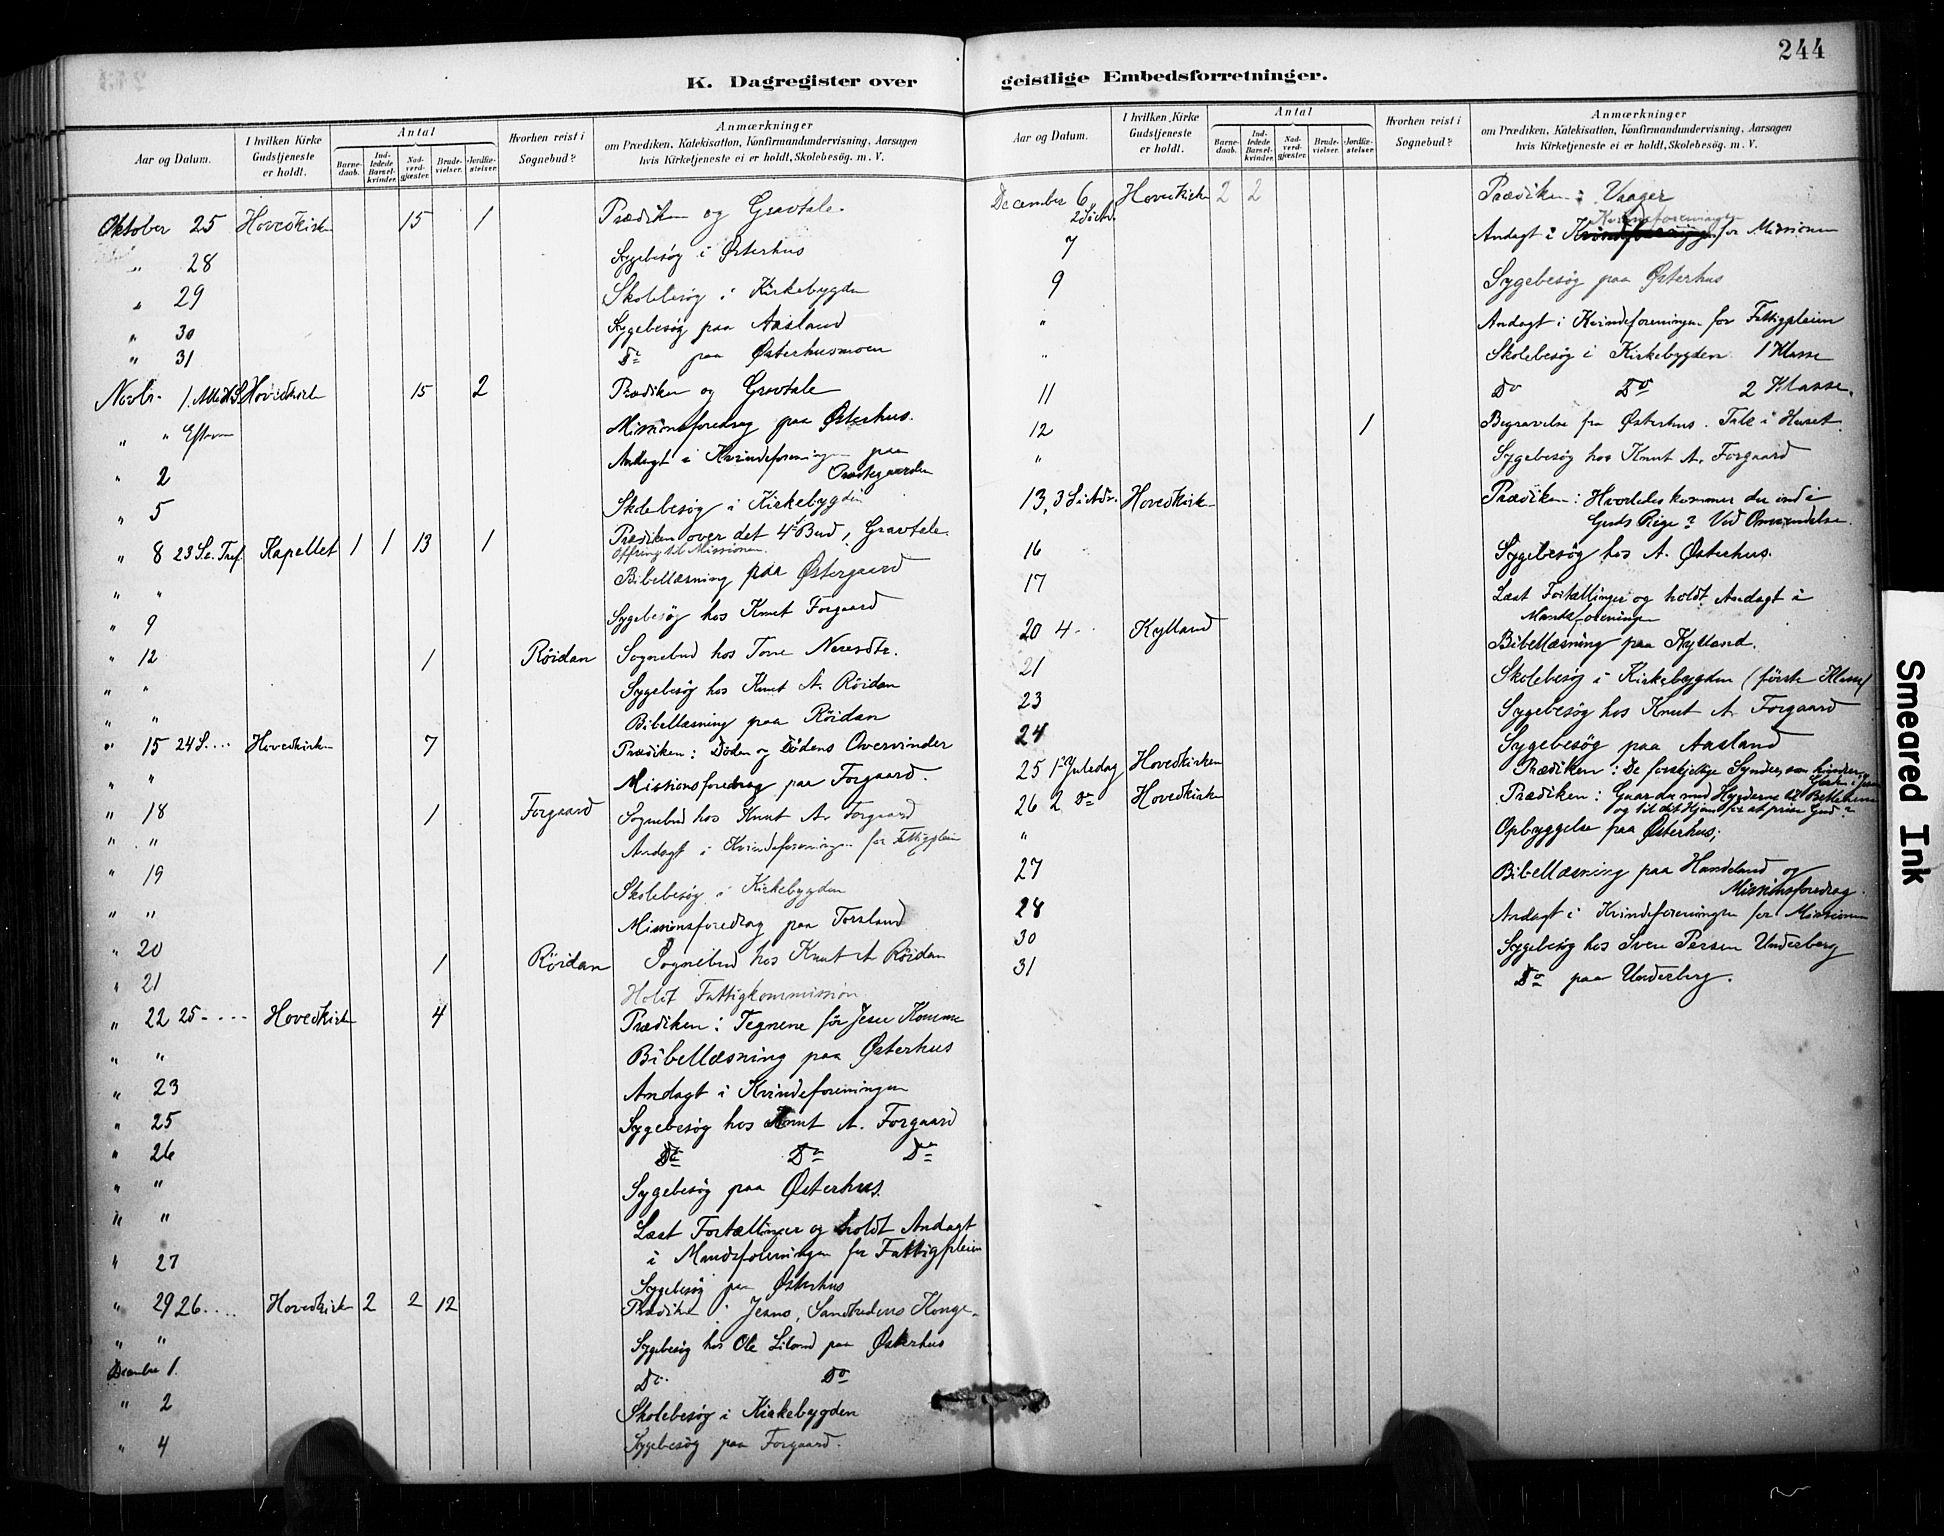 244
K. Dagregister over
geistlige Embedsforretninger.
Aar og Datum.
I hvilken Kirke Gudstjeneste er holdt.
Antal
Barnedaab.
Indledede Barselkvinder.
Nadverdgjæster.
Brudevielser.
Jordfæstelser.
Hvorhen reist i Sognebud?
Anmærkninger
om Prædiken, Katekisation, Konfirmandundervisning, Aarsagen
hvis Kirketjeneste ei er holdt, Skolebesög. m. V.
Oktober 25 Hovedkirken 15 1 Prædiken og Gravtale.
" 28 Sygebesög i Østerhus
" 29 Skolebesög i Kirkebygden
" 30 Sygebesög paa Aasland
" 31 Do paa Østerhusmoen
Novbr. 1. Alleh.S. Hovedkirken 15 2 Prædiken og Gravtale
" " Efterm Missionsforedrag paa Østerhus.
" 2 Andagt i Kvindeforeningen paa
Præstegaarden
" 5 Skolebesög i Kirkebygden
" 8 23 S.e.Tref. Kapellet 1 1 13 1 Prædiken over det 4de Bud, Gravtale.
Offring til Missionen.
" " Bibellæsning paa Østergaard
" 9 Sygebesög hos Knut Forgaard
" 12 1 Röidan Sognebud hos Tone Neresdtr.
" " Sygebesög hos Knut A. Röidan
" " Bibellæsning paa Röidan
" 15 24 S.... Hovedkirken 7 Prædiken: Döden og Dödens Overvinder
" " Missionsforedrag paa Forgaard.
" 18 1 Forgaard Sognebud hos Knut A. Forgaard
" " Andagt i Kvindeforeningen for Fattigpleien
" 19 Skolebesög i Kirkebygden
" " Missionsforedrag paa Torsland
" 20 1 Röidan Sognebud hos Knut A Röidan
" 21 Holdt Fattigkommission
" 22 25 - .... Hovedkirken 4 Prædiken: Tegnene för Jesu Komme
" " Bibellæsning paa Østerhus
" 23 Andagt i Kvindeforeningen
" 25 Sygebesög hos Knut A. Forgaard
" 26 Do Do Do
" " Sygebesög paa Østerhus.
" " Læst Fortællinger og holdt Andagt
i Mandsforeningen for Fattigpleien
" 27 Sygebesög paa Østerhus
" 29 26.... Hovedkirken 2 2 12 Prædiken: Jesus, Sandhedens Konge.
" " Sygebesög hos Ole Liland paa Østerhus
December 1. Do. Do
" 2 Skolebesög i Kirkebygden
" 4 Sygebesög paa Forgaard.
Aar og Datum.
I hvilken Kirke Gudstjeneste er holdt.
Antal
Barnedaab.
Indledede Barselkvinder.
Nadverdgjæster.
Brudevielser.
Jordfæstelser.
Hvorhen reist i Sognebud?
Anmærkninger
om Prædiken, Katekisation, Konfirmandundervisning, Aarsagen
hvis Kirketjeneste ei er holdt, Skolebesög. m. V.
December 6, 2 S i Adv. Hovedkirken 2 2 Prædiken: Vaager
Kvindeforeningen
7 Andagt i Kvindeforeningen for Missionen
9 Sygebesög paa Østerhus
" Andagt i Kvindeforeningen for Fattigpleien
" Skolebesög i Kirkebygden 1 Klasse
11 Do Do 2 Klasse.
12 1 Begravelse fra Østerhus. Tale i Huset.
" Sygebesög hos Knut A. Forgaard
13, 3 S i Adv. Hovedkirken Prædiken: Hvorledes kommer du ind i
Guds Rige? Ved Omvendelse.
16 Sygebesög hos A. Østerhus.
17 Læst Fortællinger og holdt Andagt i
Mandsforeningen
20 4 - .. Kylland Bibellæsning paa Kylland.
21 Skolebesög i Kirkebygden (förste Klasse)
23 Sygebesög hos Knut A. Forgaard
24 Sygebesög paa Aasland
25 1ste Juledag Hovedkirken Prædiken: De forskjellige Synder, som hindrer
26 2 Do Hovedkirken Prædiken: Gaar du med Hyrderne til Bethlehem
og til dit Hjem for at prise Gud?
" Opbyggelse paa Østerhus;
27 Bibellæsning paa Handeland og
Missionsforedrag.
28 Andagt i Kvindeforeningen for Missionen
30 Sygebesög hos Sven Persen Underberg
31 Do paa Underberg.
Smeared Ink